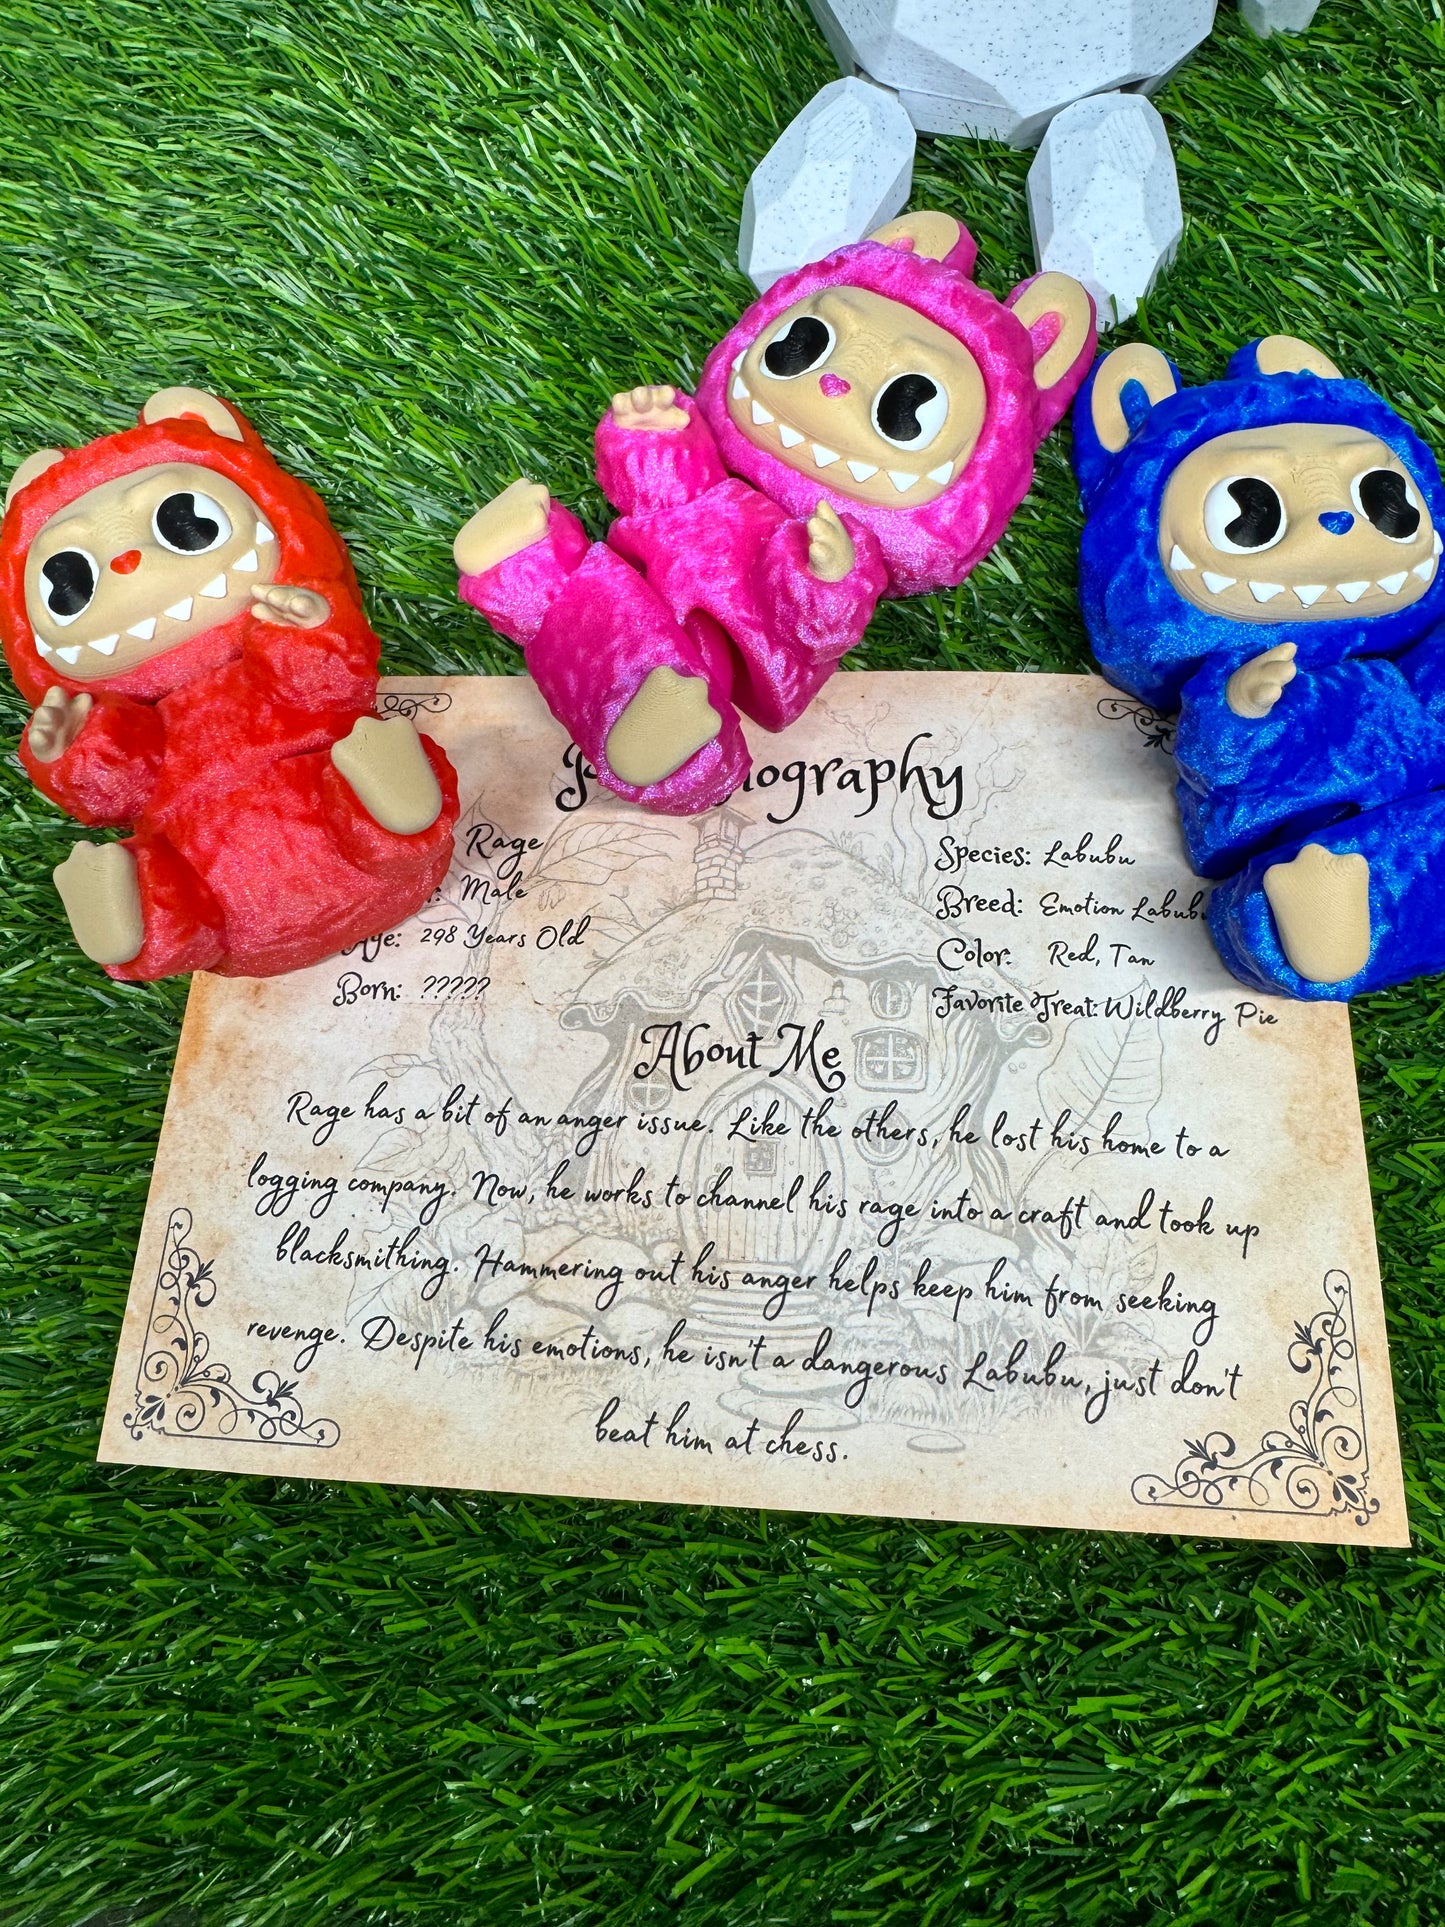 Rage
Male
Age: 298 Years Old
Born: ?????
Species: Labubu
Breed: Emotion Labubu
Color: Red, Tan
Favorite Treat: Wildberry Pie
About Me
Rage has a bit of an anger issue. Like the others, he lost his home to a
logging company. Now, he works to channel his rage into a craft and took up
blacksmithing. Hammering out his anger helps keep him from seeking
revenge. Despite his emotions, he isn't a dangerous Labubu, just don't
beat him at chess.